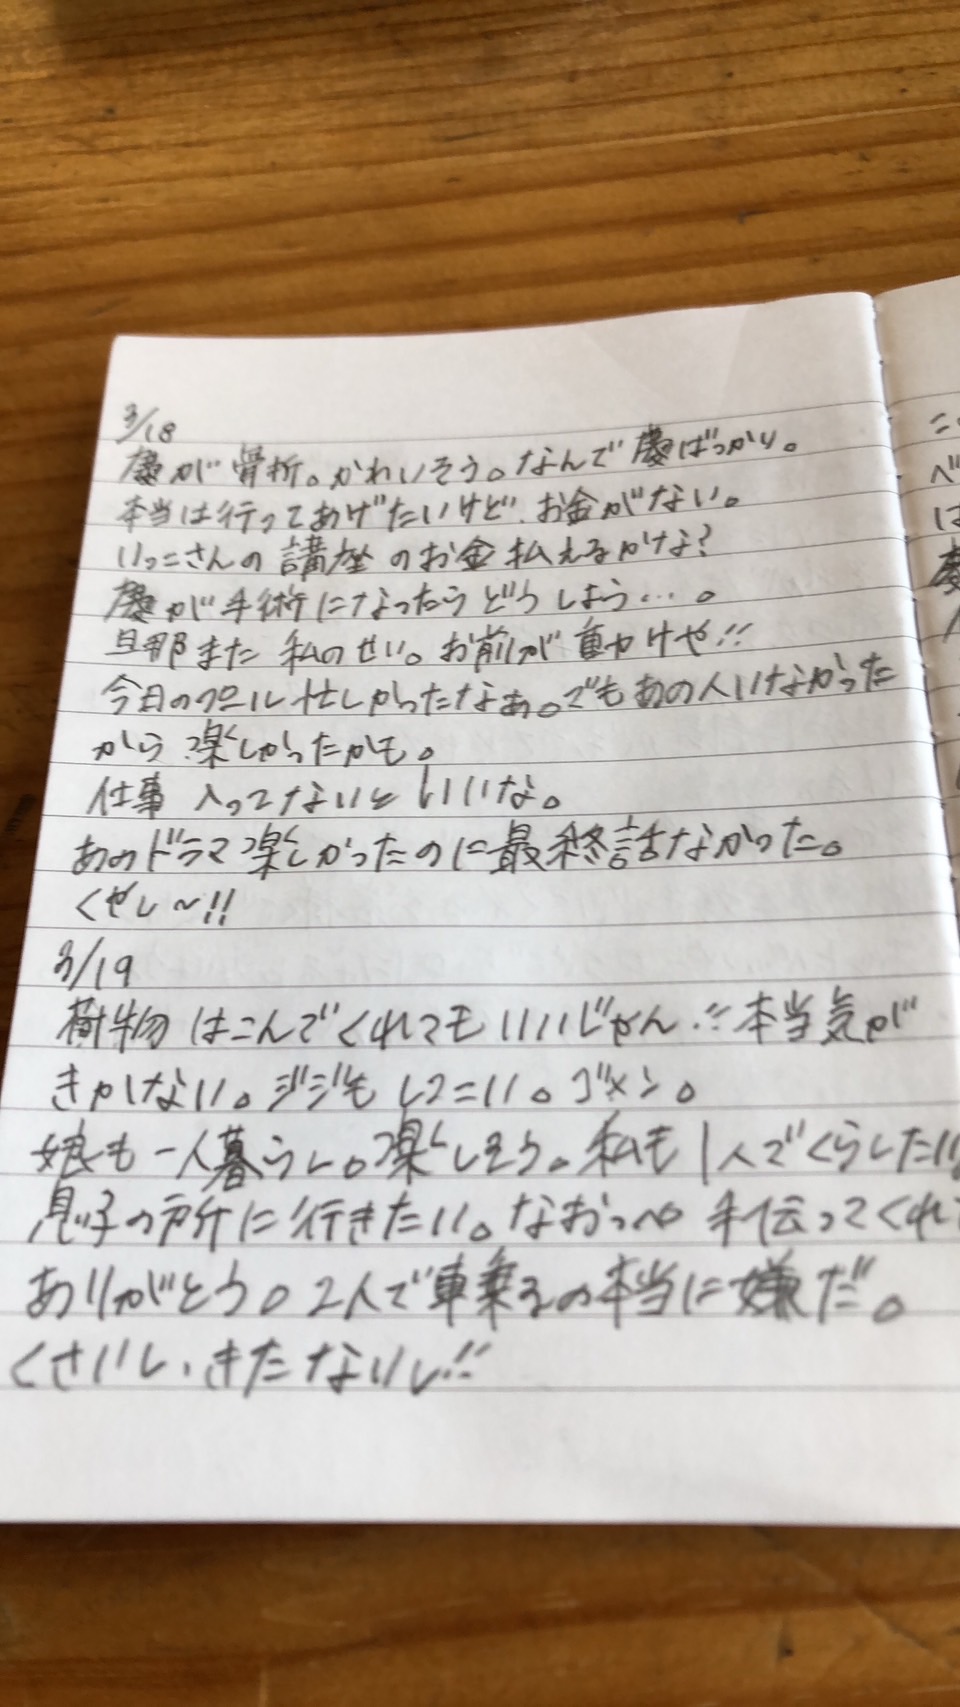 3/18
慶が骨折。かわいそう。なんで慶ばっかり。
本当は行ってあげたいけど、お金がない。
いっこさんの講座のお金払えるかな?
慶が手術になったらどうしよう…。
旦那また私のせい。お前が動けや!!
今日のプール忙しかったなぁ。でもあの人いなかった
から楽しかったかも。
仕事入ってないといいな。
あのドラマ楽しかったのに最終話なかった。
くやし~!!
3/19
樹物はこんでくれてもいいじゃん!!本当気が
きかない。ジジもしつこい。ゴメン。
娘も一人暮らし。楽しそう。私も1人でくらしたい
息子の所に行きたい。なおっぺ手伝ってくれて
ありがとう。2人で車乗るの本当に嫌だ。
くさいし、きたないし!!